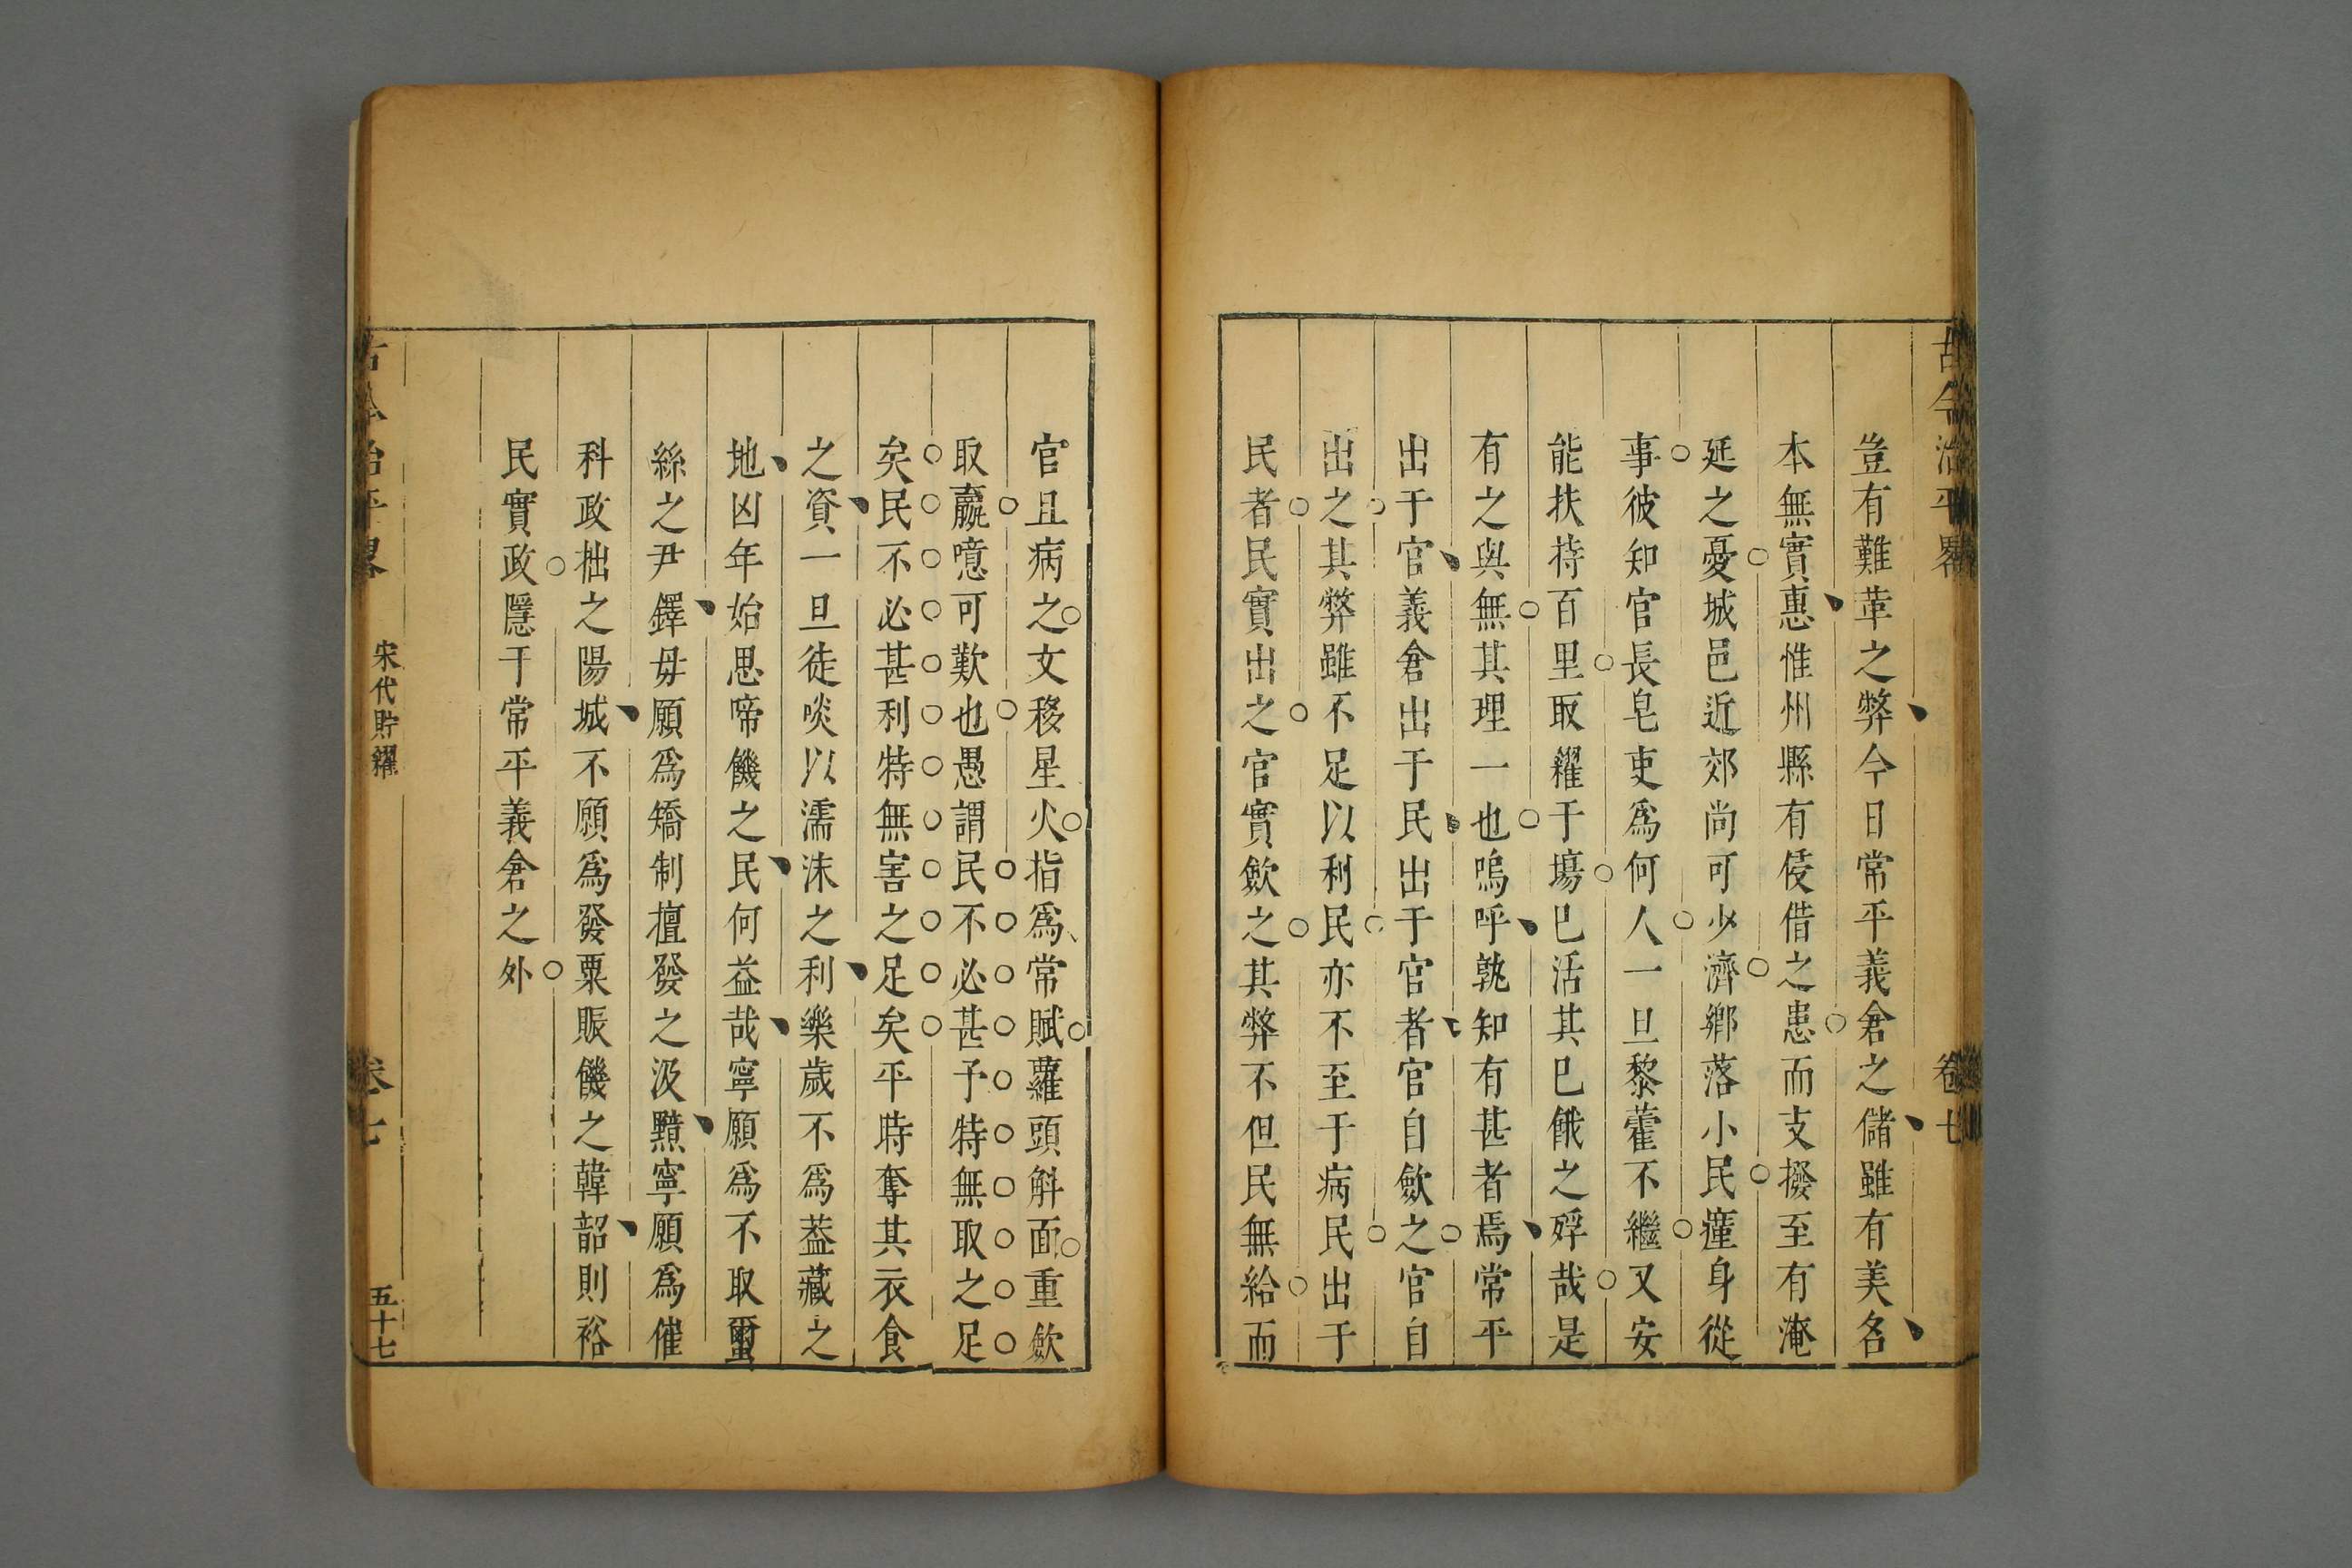 古今治平畧
卷七
豈有難革之弊今日常平義倉之儲雖有美名
本無實惠惟州縣有侵借之患而支撥至有淹
延之憂城邑近郊尚可少濟鄉落小民瘽身從
事彼知官長皂吏爲何人一旦黎藿不繼又安
能扶持百里取糴于塲已活其已餓之殍哉是
有之與無其理一也嗚呼孰知有甚者焉常平
出于官義倉出于民出于官者官自歛之官自
出之其弊雖不足以利民亦不至于病民出于
民者民實出之官實歛之其弊不但民無給而
官且病之文移星火指爲常賦蘿頭斛面重歛
取蠃噫可歎也愚謂民不必甚予特無取之足
矣民不必甚利特無害之足矣平時奪其衣食
之資一旦徒啖以濡沫之利樂歲不爲葢藏之
地凶年始思啼饑之民何益哉寧願爲不取璽
絲之尹鐸毋願爲矯制擅發之汲黯寧願爲催
科政拙之陽城不願爲發粟賑饑之韓韶則裕
民實政隱于常平義倉之外
古今治平畧
宋代貯糴
卷七
五十七